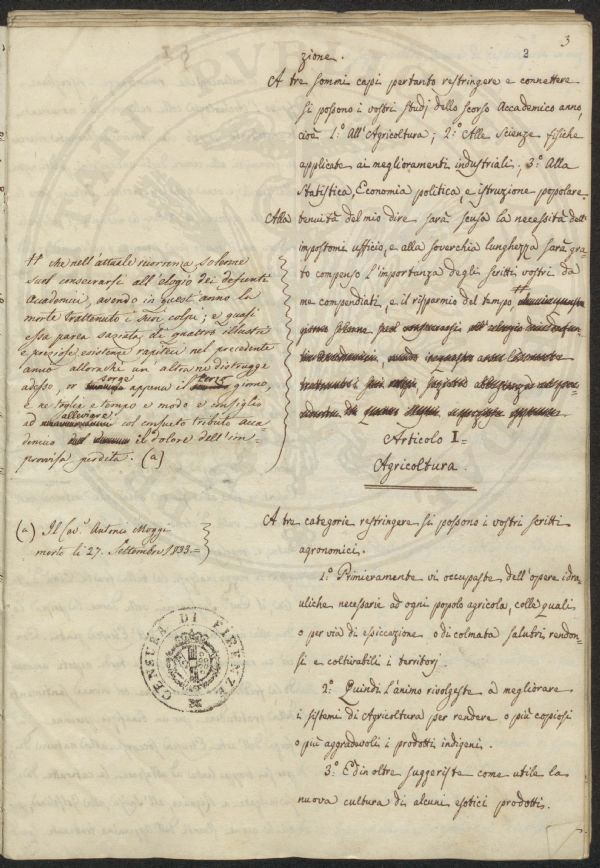 3
2
zione.
A tre sommi capi pertanto restringere e connettere
si possono i vostri studj dello scorso Accademico anno,
cioè 1.º All'Agricoltura; 2.º Alle Scienze fisiche
applicate ai miglioramenti industriali; 3.º Alla
Statistica, Economia politica, e istruzione popolare.
Alla tenuità del mio dire sarà scusa la necessità dell'
impostomi ufficio, e alla soverchia lunghezza sarà gra-
to compenso l'importanza degli scritti vostri da
me compendiati, e il risparmio del tempo #
# che nell'attuale ricorrenza solenne
suol consecrarsi all'elogio dei defunti
Accademici, avendo in quest'anno la
morte trattenuto i suoi colpi; e quasi
essa parea saziata di quattro illustri
e preziose esistenze rapiteci nel precedente
anno allorachè un'altra ne distrugge
adesso, or sorge appena il terzo giorno,
e ne toglie e tempo e modo e consiglio
ad alleviare col consueto tributo acca
demico il dolore dell'im-
provvisa perdita. (a)
(a) Il Cav.r Antonio Moggi
morto li 27. Settembre 1833.=
CENSURA DI FIRENZE
Articolo I=
Agricoltura.
A tre categorie restringere si possono i vostri scritti
agronomici.
1.º Primieramente vi occupaste dell'opere idra-
uliche necessarie ad ogni popolo agricola, colle quali
o per via di essiccazione o di colmata salubri rendon-
si e coltivabili i territorj.
2.º Quindi l'animo rivolgeste a migliorare
i sistemi di Agricoltura per rendere o più copiosi
o più aggradevoli i prodotti indigeni.
3.º Ed in oltre suggeriste come utile la
nuova cultura di alcuni esotici prodotti.